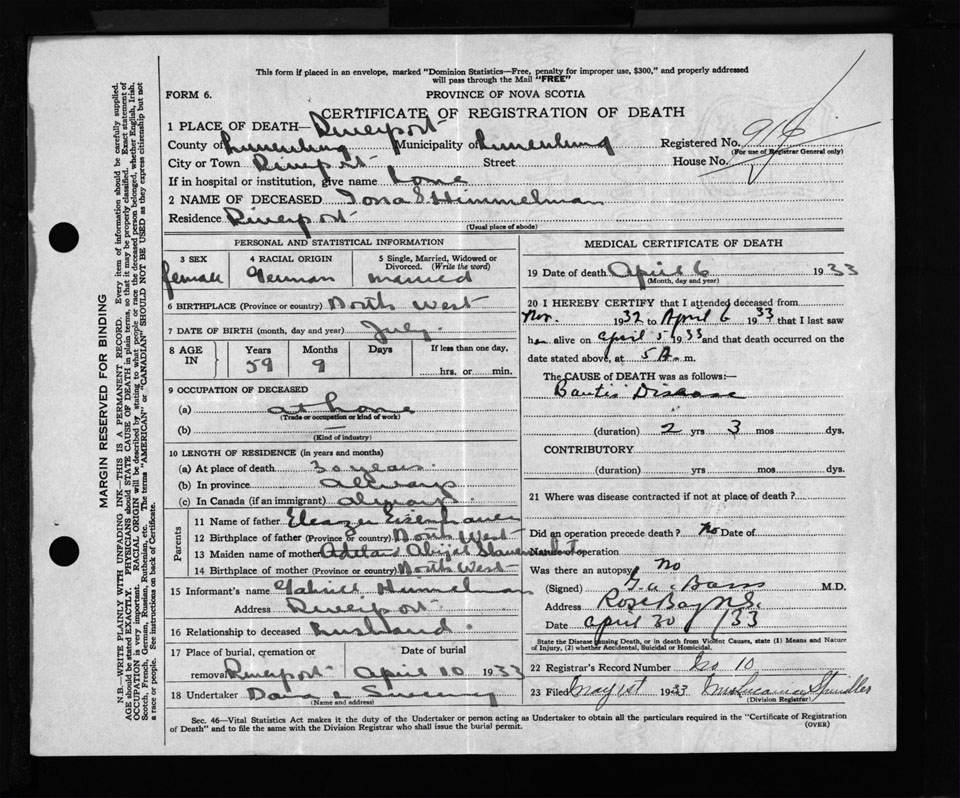 This form if placed in an envelope, marked "Dominion Statistics—Free, penalty for improper use, $300," and properly addressed
will pass through the Mail "FREE"
FORM 6.
PROVINCE OF NOVA SCOTIA
CERTIFICATE OF REGISTRATION OF DEATH
1 PLACE OF DEATH— Riverport
County of Lunenburg Municipality of Lunenburg Registered No.
(For use of Registrar General only)
City or Town Riverport Street House No.
If in hospital or institution, give name home
2 NAME OF DECEASED Himmelman
Residence Riverport
(Usual place of abode)
PERSONAL AND STATISTICAL INFORMATION
3 SEX 4 RACIAL ORIGIN 5 Single, Married, Widowed or Divorced. (Write the word)
female German married
6 BIRTHPLACE (Province or country) North West
7 DATE OF BIRTH (month, day and year) July
8 AGE IN Years Months Days If less than one day,
59 9 hrs. or min.
9 OCCUPATION OF DECEASED
(a) at home
(Trade or occupation or kind of work)
(b) —
(Kind of industry)
10 LENGTH OF RESIDENCE (in years and months)
(a) At place of death 30 years
(b) In province always
(c) In Canada (if an immigrant) always
Parents
11 Name of father Eleazer Eisenhauer
12 Birthplace of father (Province or country) North West
13 Maiden name of mother
14 Birthplace of mother (Province or country) North West
15 Informant's name Himmelman
Address Riverport
16 Relationship to deceased Husband
17 Place of burial, cremation or Date of burial
removal Riverport April 10 1933
18 Undertaker Sweeny
(Name and address)
MEDICAL CERTIFICATE OF DEATH
19 Date of death April 6 1933
(Month, day and year)
20 I HEREBY CERTIFY that I attended deceased from
Nov. 1932 to April 6 1933 that I last saw
her alive on April 5 1933 and that death occurred on the
date stated above, at 5 A. m.
The CAUSE OF DEATH was as follows:—
Bantis Disease
(duration) 2 yrs 3 mos dys.
CONTRIBUTORY
(duration) yrs mos dys.
21 Where was disease contracted if not at place of death?
Did an operation precede death? No Date of
Name of operation
Was there an autopsy No
(Signed) M.D.
Address Rose Bay N.S.
Date April 30 /33
State the Disease causing Death, or in death from Violent Causes, state (1) Means and Nature
of Injury, (2) whether Accidental, Suicidal or Homicidal.
22 Registrar's Record Number No 10
23 Filed May 1st 1933 Spindler
(Division Registrar)
Sec. 46—Vital Statistics Act makes it the duty of the Undertaker or person acting as Undertaker to obtain all the particulars required in the "Certificate of Registration
of Death" and to file the same with the Division Registrar who shall issue the burial permit. (OVER)
MARGIN RESERVED FOR BINDING
N.B.—WRITE PLAINLY WITH UNFADING INK—THIS IS A PERMANENT RECORD. Every item of information should be carefully supplied.
AGE should be stated EXACTLY. PHYSICIANS should STATE CAUSE OF DEATH in plain terms, so that it may be properly classified. Exact statement of
OCCUPATION is very important. RACIAL ORIGIN will be described by stating to what people or race the deceased person belonged, whether English, Irish,
Scotch, French, German, Russian, Ruthenian, etc. The terms "AMERICAN" or "CANADIAN" SHOULD NOT BE USED as they express citizenship but not
a race or people. See instructions on back of Certificate.